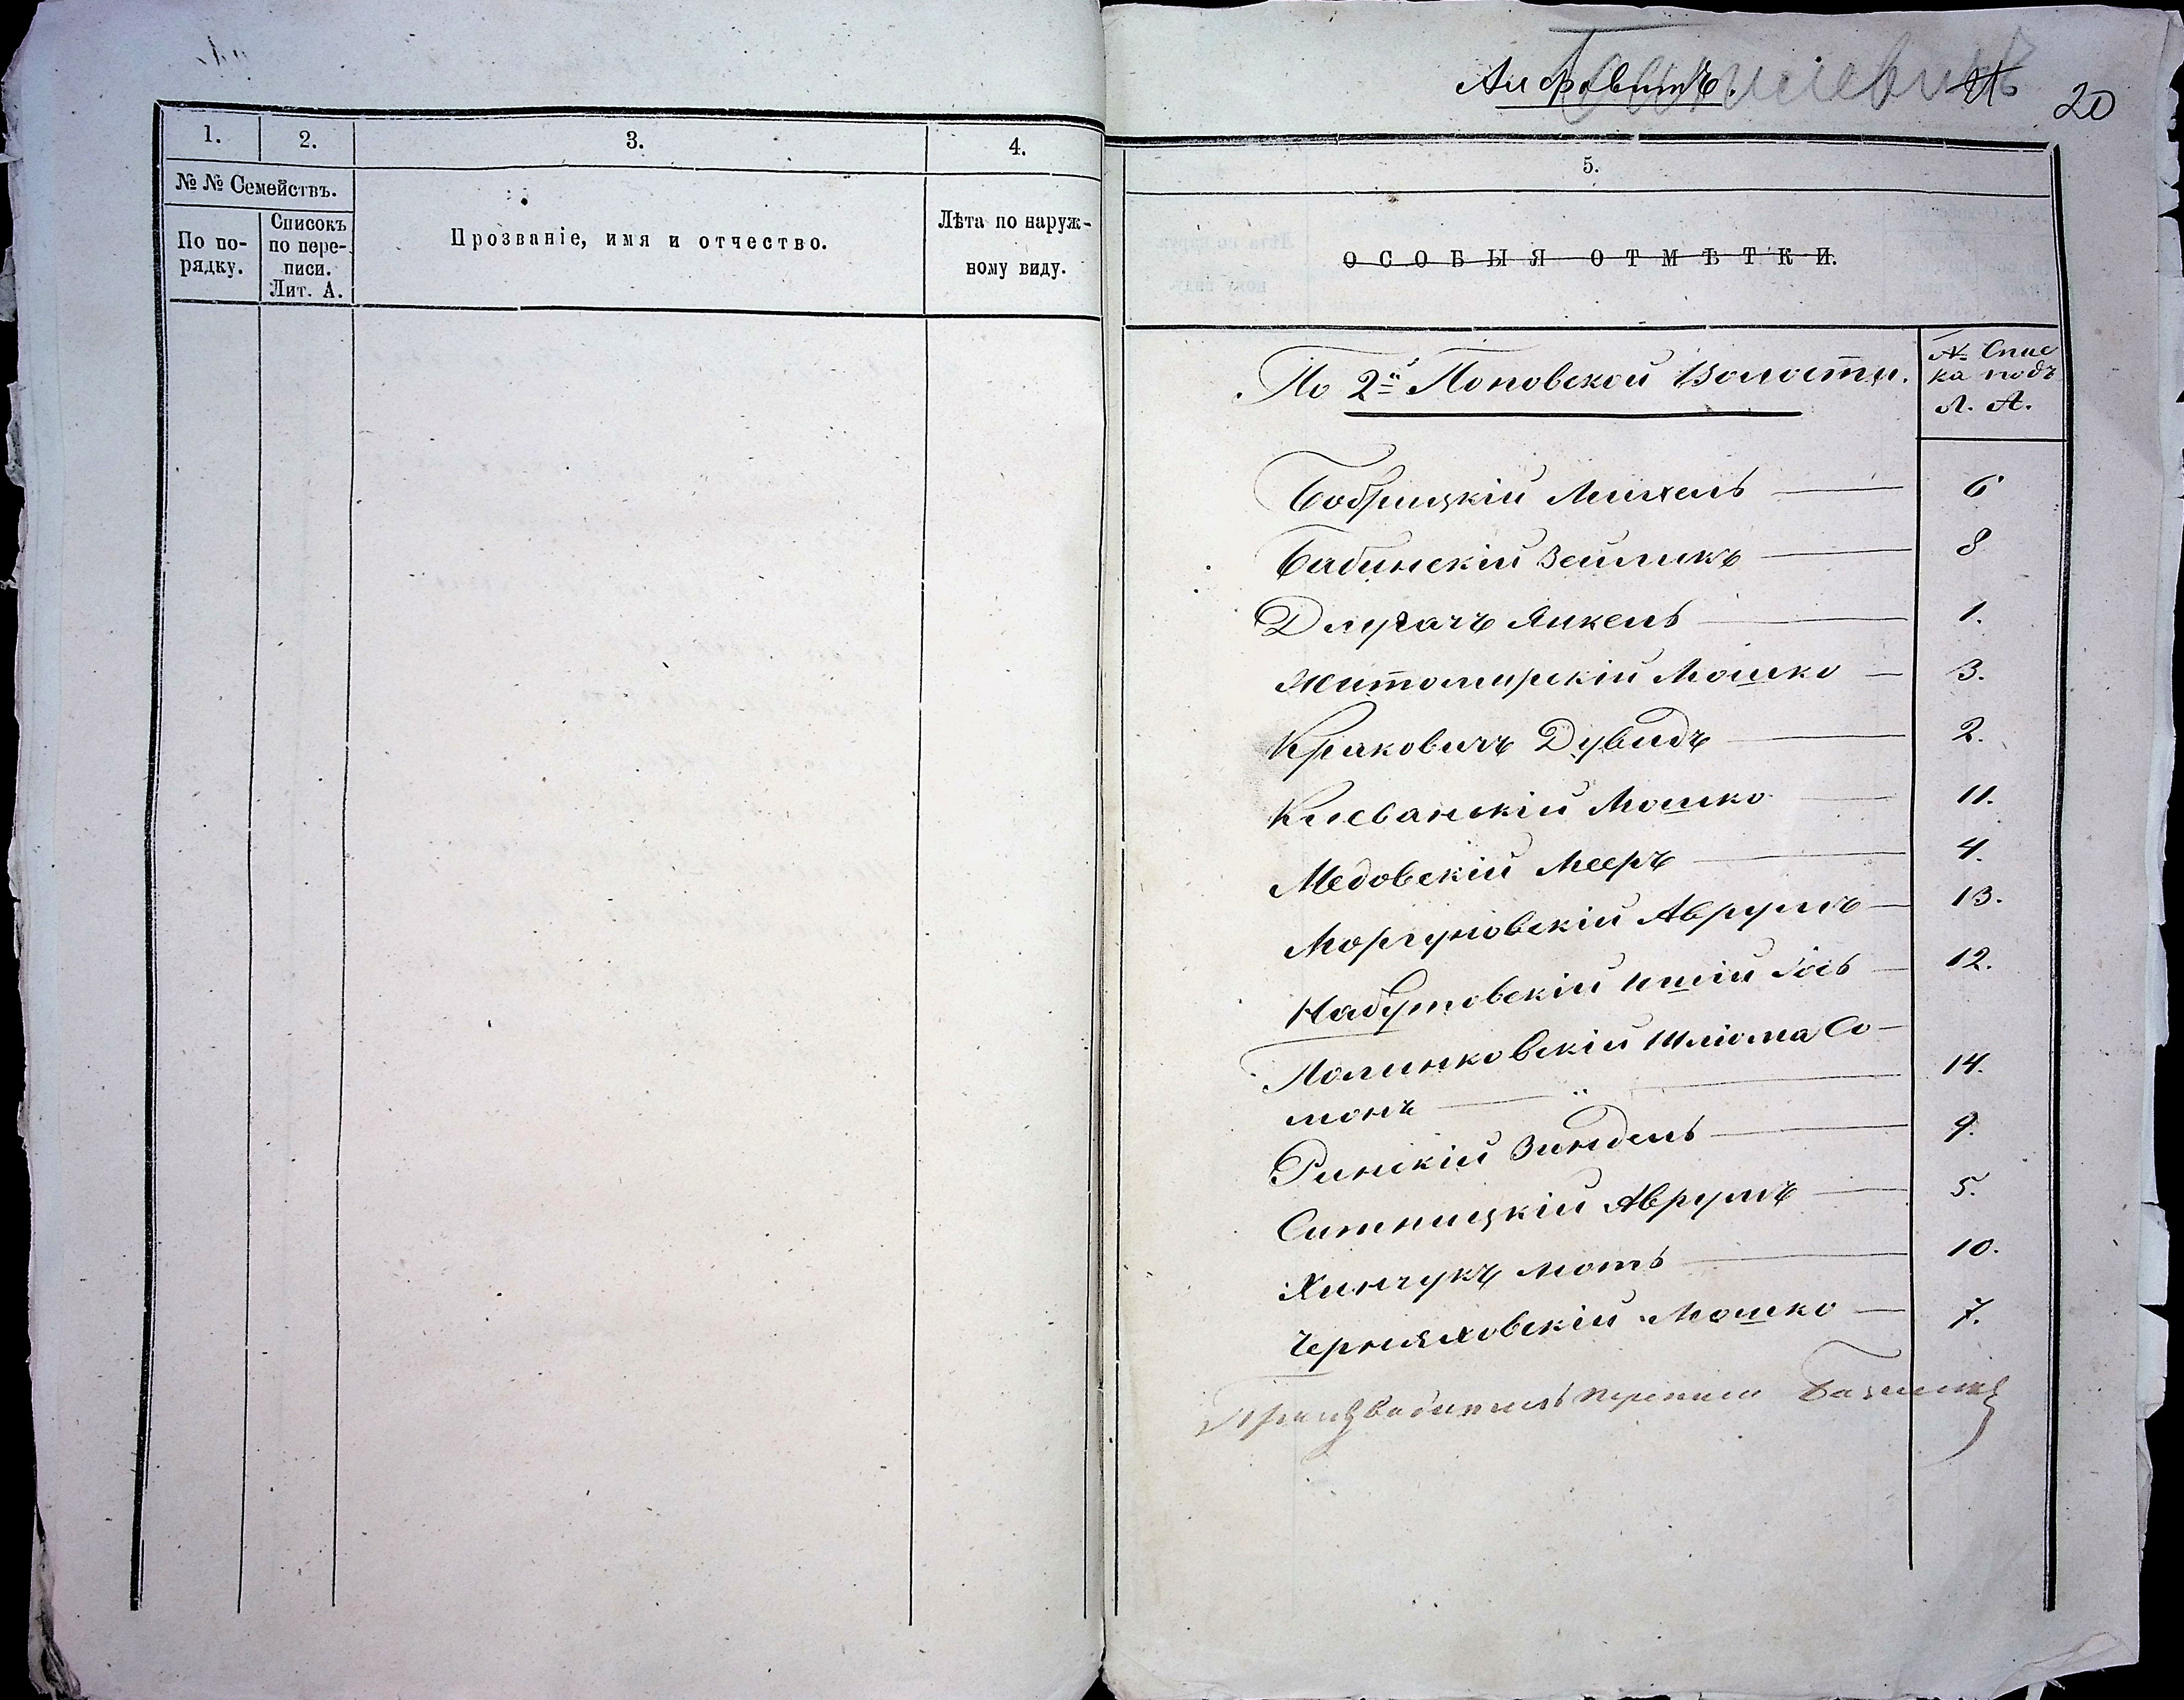 1.
2.
3.
4.
№ № Семействъ.
По по-
рядку.
Списокъ
по пере-
писи.
Лит. А.
Прозваніе, имя и отчество.
Лѣта по наруж-
ному виду.
Алфавитъ.
20
5.
ОСОБЫЯ ОТМѢТКИ.
По 2й Поповской Волости.
№ Спис
ка подъ
Л. А.
Бобрицкій Михель 6
Бабинскій Зейликъ 8
Длугачъ Янкель 1.
Житомирскій Мошко 3.
Краковичъ Дувидъ 2.
Клеванскій Мошко 11.
Медовскій Мееръ 4.
Моргуновскій Аврумъ 13.
Набутовскій Иций Іось 12.
Полинковскій Шліома Со-
монъ 14.
Ринскій Зиндель 9.
Ситницкій Аврумъ 5.
Хинчукъ Моть 10.
Черняховскій Мошко 7.
Производитель переписи